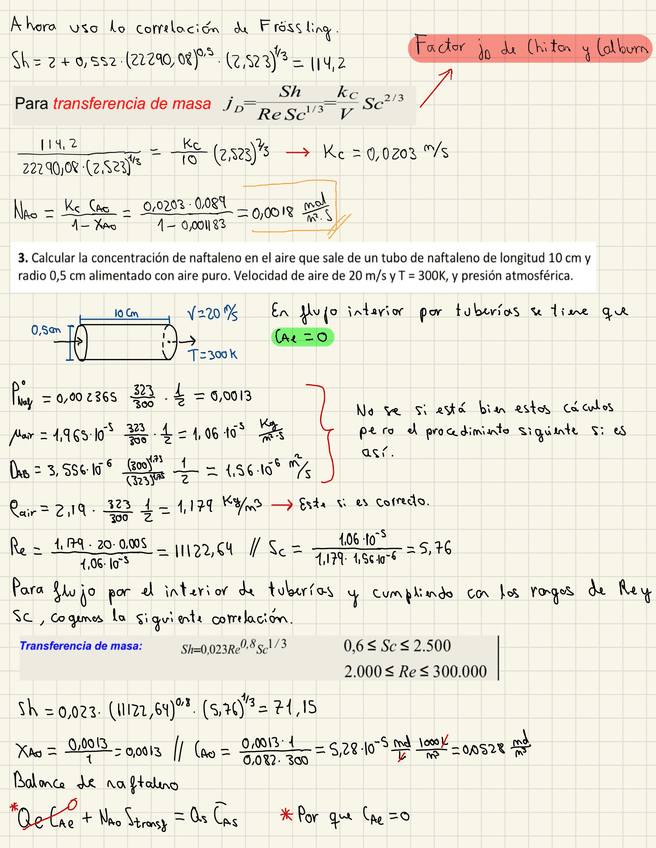 Ahora uso la correlación de Frössling.
Sh = 2 + 0,552 · (22290,08)^0,5 · (2,523)^1/3 = 114,2
Factor jD de Chilton y Colburn
Para transferencia de masa jD = Sh / (Re Sc^1/3) = kC / V Sc^2/3
114,2 / (22290,08 · (2,523)^1/3) = Kc / 10 (2,523)^2/3 → Kc = 0,0203 m/s
NA0 = Kc CA0 / (1 - XA0) = 0,0203 · 0,089 / (1 - 0,001183) = 0,0018 mol / m²·s
3. Calcular la concentración de naftaleno en el aire que sale de un tubo de naftaleno de longitud 10 cm y
radio 0,5 cm alimentado con aire puro. Velocidad de aire de 20 m/s y T = 300K, y presión atmosférica.
10 cm
0,5cm
V=20 m/s
T=300K
En flujo interior por tuberías se tiene que
CAe = 0
P°Naf = 0,002365 323/300 · 1/2 = 0,0013
μair = 1,965·10^-5 323/300 · 1/2 = 1,06·10^-5 Kg/m²·s
DAB = 3,556·10^-6 (300)^1,75 / (323)^1,75 1/2 = 1,56·10^-6 m²/s
No se si está bien estos cáculos
pero el procedimiento siguiente si es
así.
ρair = 2,19 · 323/300 1/2 = 1,179 Kg/m³ → Este si es correcto.
Re = 1,179 · 20 · 0,005 / 1,06·10^-5 = 11122,64 // Sc = 1,06·10^-5 / (1,179 · 1,56·10^-6) = 5,76
Para flujo por el interior de tuberías y cumpliendo con los rangos de Re y
Sc, cogemos la siguiente correlación.
Transferencia de masa: Sh=0,023Re^0,8 Sc^1/3 0,6 ≤ Sc ≤ 2.500
2.000 ≤ Re ≤ 300.000
Sh = 0,023 · (11122,64)^0,8 · (5,76)^1/3 = 71,15
XA0 = 0,0013 / 1 = 0,0013 // CA0 = 0,0013 · 1 / (0,082 · 300) = 5,28·10^-5 mol/L 1000L/m³ = 0,0528 mol/m³
Balance de naftaleno
*Qe CAe 0 + NA0 Stransf = Qs C̄As * Por que CAe = 0